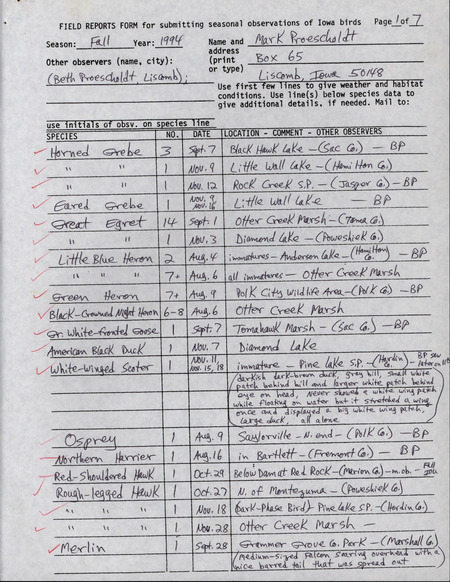 FIELD REPORTS FORM for submitting seasonal observations of Iowa birds Page 1 of 7
Season: Fall Year: 1994 Name and address (print or type) Mark Proescholdt
Box 65
Liscomb, Iowa 50148
Other observers (name, city):
(Beth Proescholdt Liscomb);
Use first few lines to give weather and habitat
conditions. Use line(s) below species data to
give additional details, if needed. Mail to:
use initials of obsv. on species line
SPECIES NO. DATE LOCATION - COMMENT - OTHER OBSERVERS
Horned Grebe 3 Sept. 7 Black Hawk Lake - (Sac Co.) - BP
" " 1 Nov. 9 Little Wall Lake - (Hamilton Co.)
" " 1 Nov. 12 Rock Creek S.P. - (Jasper Co.) - BP
Eared Grebe 1 Nov. 9, Nov. 16 Little Wall Lake - BP
Great Egret 14 Sept. 1 Otter Creek Marsh - (Tama Co.)
" " 1 Nov. 3 Diamond Lake - (Poweshiek Co.)
Little Blue Heron 2 Aug. 4 immatures - Anderson Lake - (Hamilton Co.) - BP
" " " 7+ Aug. 6 all immatures - Otter Creek Marsh
Green Heron 7+ Aug. 9 Polk City Wildlife Area - (Polk Co.) - BP
Black-Crowned Night Heron 6-8 Aug. 6 Otter Creek Marsh
Gr. White-fronted Goose 1 Sept. 7 Tomahawk Marsh - (Sac Co.) - BP
American Black Duck 1 Nov. 7 Diamond Lake
White-Winged Scoter 1 Nov. 11, Nov. 15, 18 immature - Pine Lake S.P. - (Hardin Co.) - BP saw later on
darkish dark-brown duck, gray bill, small white
patch behind bill and larger white patch behind
eye on head, never showed a white wing patch
while floating on water but it stretched a wing
once and displayed a big white wing patch,
large duck, all alone
Osprey 1 Aug. 9 Saylorville - N. end - (Polk Co.) - BP
Northern Harrier 1 Aug. 16 in Bartlett - (Fremont Co.) - BP
Red-Shouldered Hawk 1 Oct. 29 Below Dam at Red Rock - (Marion Co.) - m.ob. - Fall IOU
Rough-legged Hawk 1 Oct. 27 N. of Montezuma - (Poweshiek Co.)
" " " 1 Nov. 18 (Dark-Phase Bird) - Pine Lake S.P. - (Hardin Co.)
" " " 1 Nov. 28 Otter Creek Marsh -
Merlin 1 Sept. 28 Grammer Grove Co. Park - (Marshall Co.)
(Medium-sized Falcon soaring overhead with a
nice barred tail that was spread out